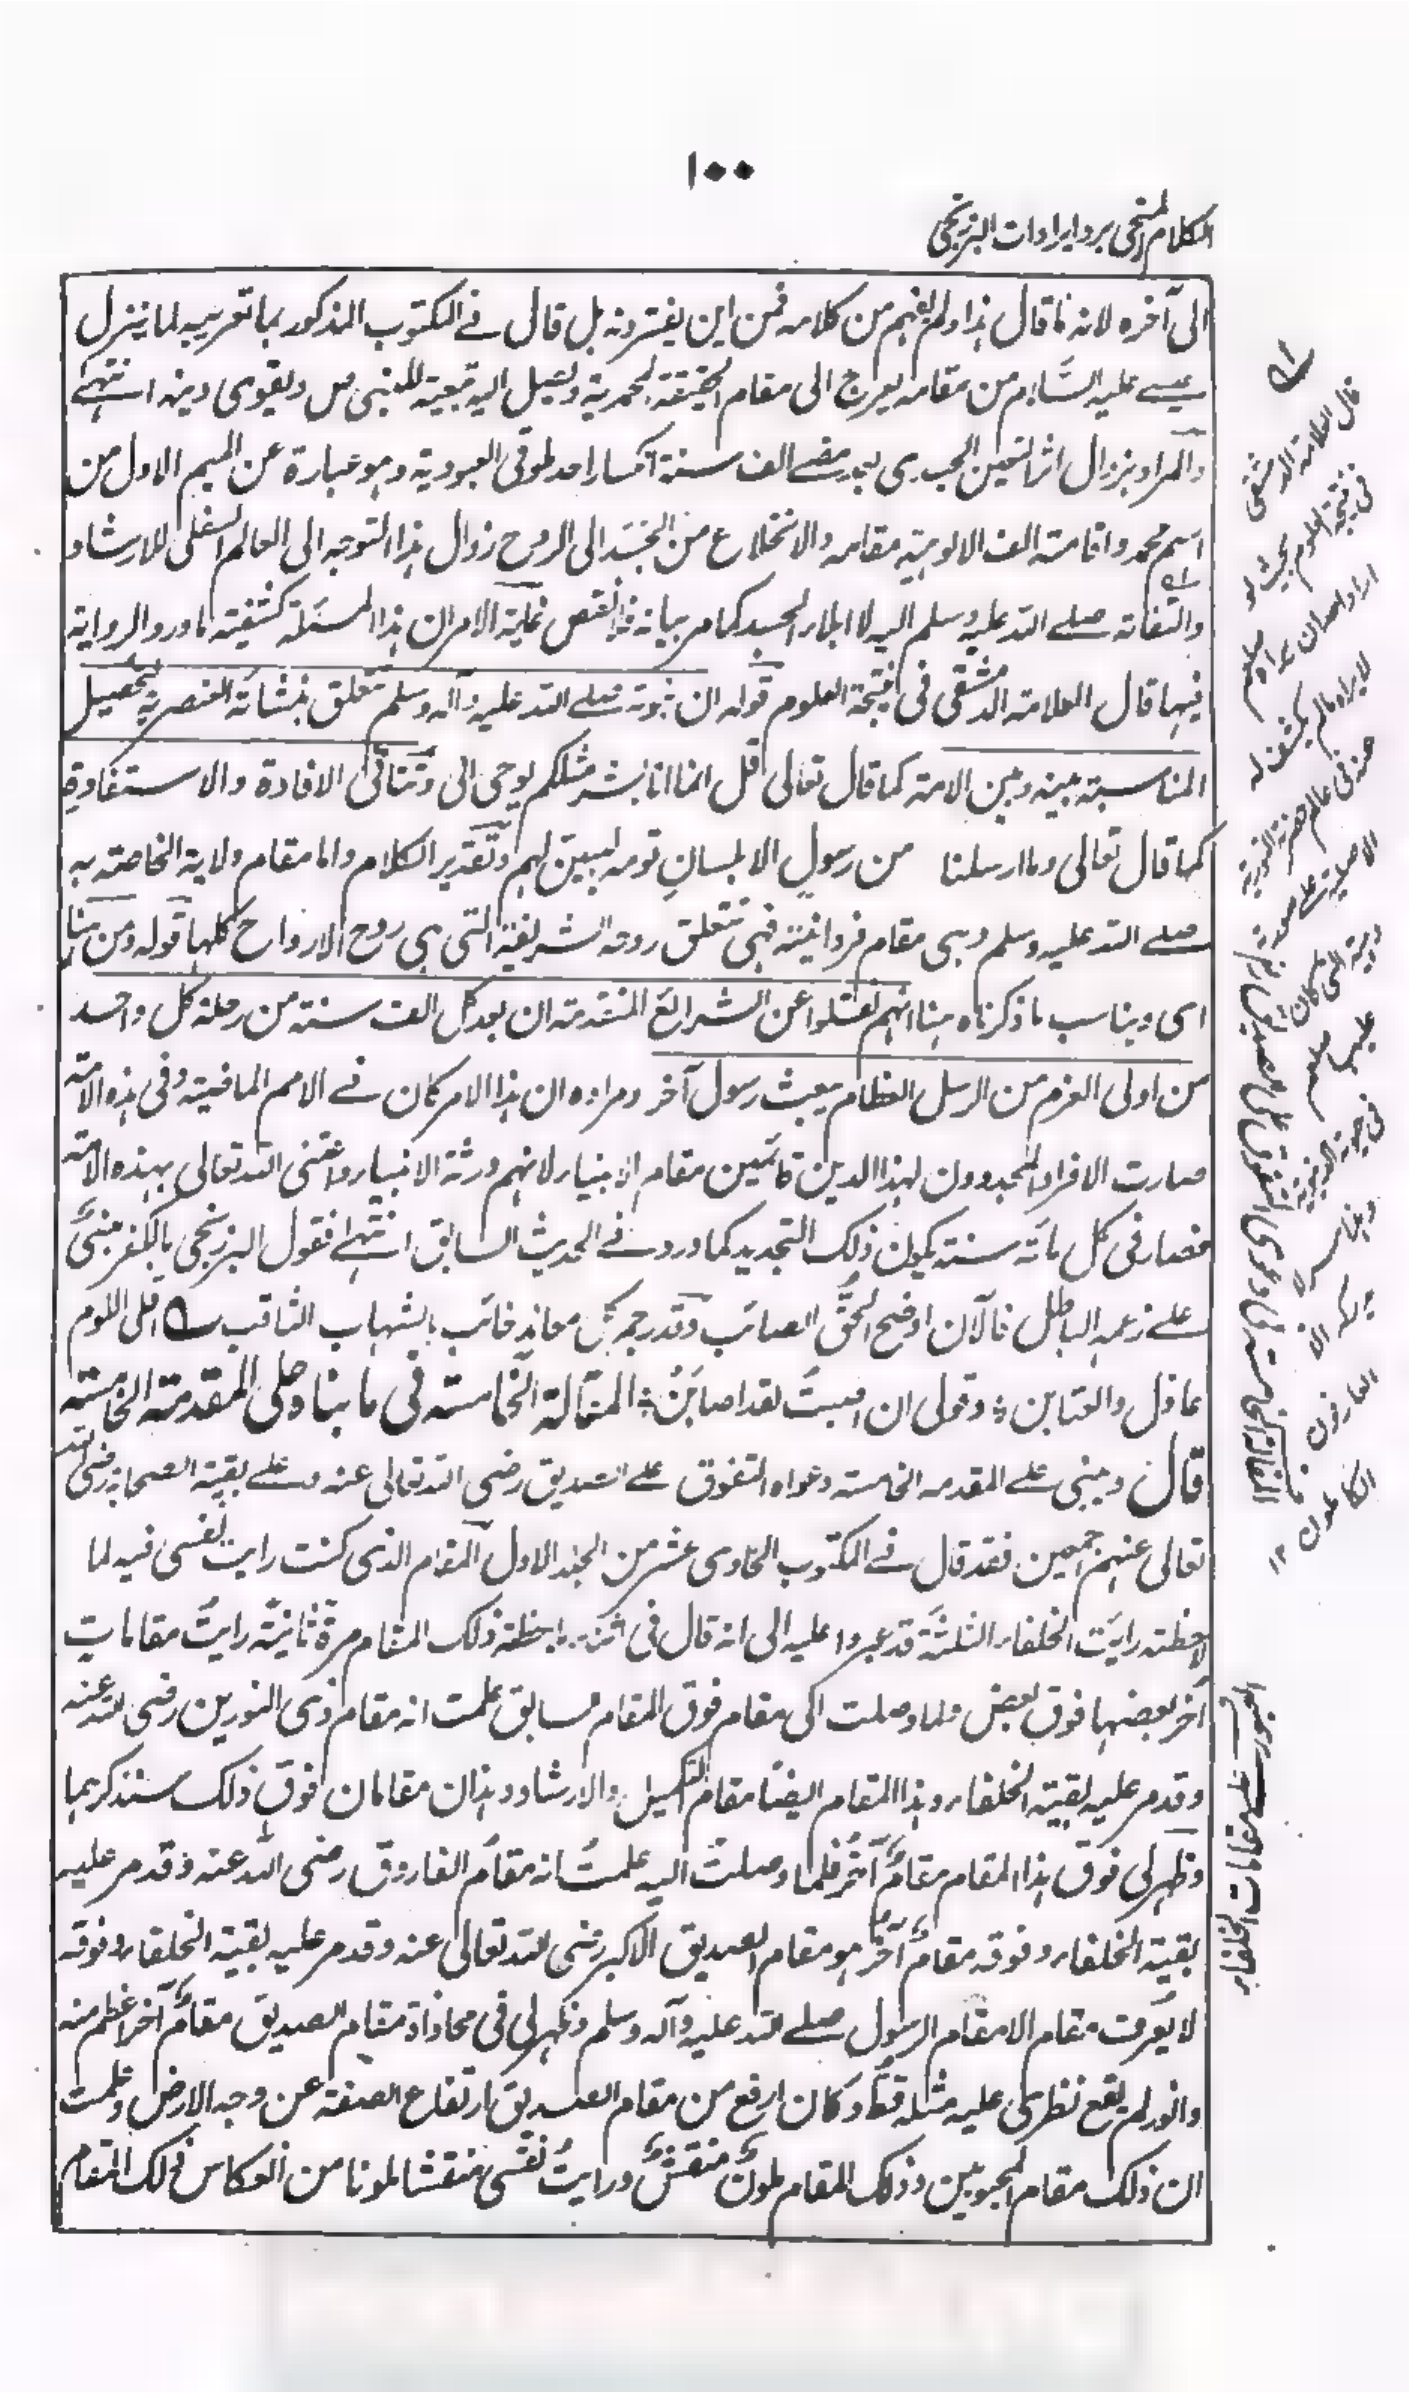 ١٠٠
الكلام المنجى برد ايرادات البرزنجى
الى آخره لانه ما قال هذا ولم يفهم من كلامه فمن اين يفترونه بل قال فے المكتوب المذكور بما تعريبه لما ينزل
عيسے عليه السلام من مقامه يعرج الى مقام الحقيقة المحمدية ويصل اليه تبعية للنبى ص ويقوى دينه انتهے
والمراد بزوال اثر التعين الجسدى بعد مضے الف سنة انكسار احد طوقى العبودية وهو عبارة عن الميم الاول من
اسم محمد واقامة الف الالوهية مقامه والانخلاع من الجسد الى الروح زوال هذا التوجه الى العالم السفلى للارشاد
والتفاته صلے الله عليه وسلم اليه لا ابلاء الجسد كما مر بيانه غاية الامر ان هذا المسئلة كشفية ما ورد الرواية
فيها قال العلامة الدمشقى فى نتيجة العلوم قوله ان نبوته صلے الله عليه وآله وسلم تتعلق بنشأته العنصرية لتحصيل
المناسبة بينه وبين الامة كما قال تعالى قل انما انا بشر مثلكم يوحى الى وتتأتى الافادة والاستفادة
كما قال تعالى وما ارسلنا من رسول الا بلسان قومه ليبين لهم وتقدير الكلام واما مقام ولاية الخاصة به
صلے الله عليه وسلم وهى مقام فردانيته فهى تتعلق روحه الشريفة التى هى روح الارواح كلها قوله ومن هنا
اى ويناسب ما ذكرناه هنا انهم نقلوا عن الشرائع المتقدمة ان بعد كل الف سنة من رحلة كل واحد
من اولى العزم من الرسل العظام يبعث رسول آخر ومراده ان هذا الامر كان فے الامم الماضية وفى هذه الامة
صارت الافراد المجددون لهذا الدين قائمين مقام الانبياء لانهم ورثة الانبياء واعتنى الله تعالى بهذه الامة
فصار فى كل مائة سنة يكون ذلك التجديد كما ورد فے الحديث السابق انتهے فقول البرزنجى بالكفر مبنىٌ
علے زعمه الباطل فالآن اوضح الحق الصائب وقد رجم كل معاند خائب بالشهاب الثاقب اقلى اللوم
عاذل والعتابن وقولى ان اصبتُ لقد اصابن المقالة الخامسة فى ما بناه على المقدمة الخامسة
قال ومبنى علے المقدمه الخامسة دعواه التفوق علے الصديق رضى الله تعالى عنه وعلے بقية الصحابة رضى الله
تعالى عنهم اجمعين فقد قال فے المكتوب الحادى عشر من الجلد الاول المقام الذى كنت رايت نفسى فيه لما
لاحظته رايت الخلفاء الثلثة قد عبروا عليه الى انه قال فى اثناء ملاحظة ذلك المقام مرة ثانية رايت مقامات
آخر بعضها فوق بعض ولما وصلت الى مقام فوق المقام السابق علمت انه مقام ذى النورين رضى الله عنه
وقد مر عليه بقية الخلفاء وهذا المقام ايضًا مقام التكميل والارشاد وهذان مقامان فوق ذلك سنذكرهما
وظهر لى فوق هذا المقام مقامٌ آخر فلما وصلت اليه علمتُ انه مقام الفاروق رضى الله عنه وقد مر عليه
بقية الخلفاء وفوقه مقام آخر هو مقام الصديق الاكبر رضى الله تعالى عنه وقد مر عليه بقية الخلفاء وفوقه
لا يعرف مقام الا مقام الرسول صلے الله عليه وآله وسلم وظهر لى فى محاذاة مقام الصديق مقامٌ آخر اعظم منه
وانور لم يقع نظرى عليه مثله قط وكان ارفع من مقام الصديق ارتفاع الصفة عن وجه الارض وعلمت
ان ذلك مقام المحبوبين وذلك المقام ملونٌ منقشٌ ورايتُ نفسى منقشا ملونا من انعكاس ذلك المقام
قال العلامة الدمشقى
فى نتيجة العلوم
لا يراه مالم يكشف له
عنه فى عالم
الاصلية على صورته
التى كان
عليها صلعم
العارفون
الكاملون ١٢
المقالة الخامسة فى دعوى التفوق على الصديق
العبور علے مقامات الخلفاء